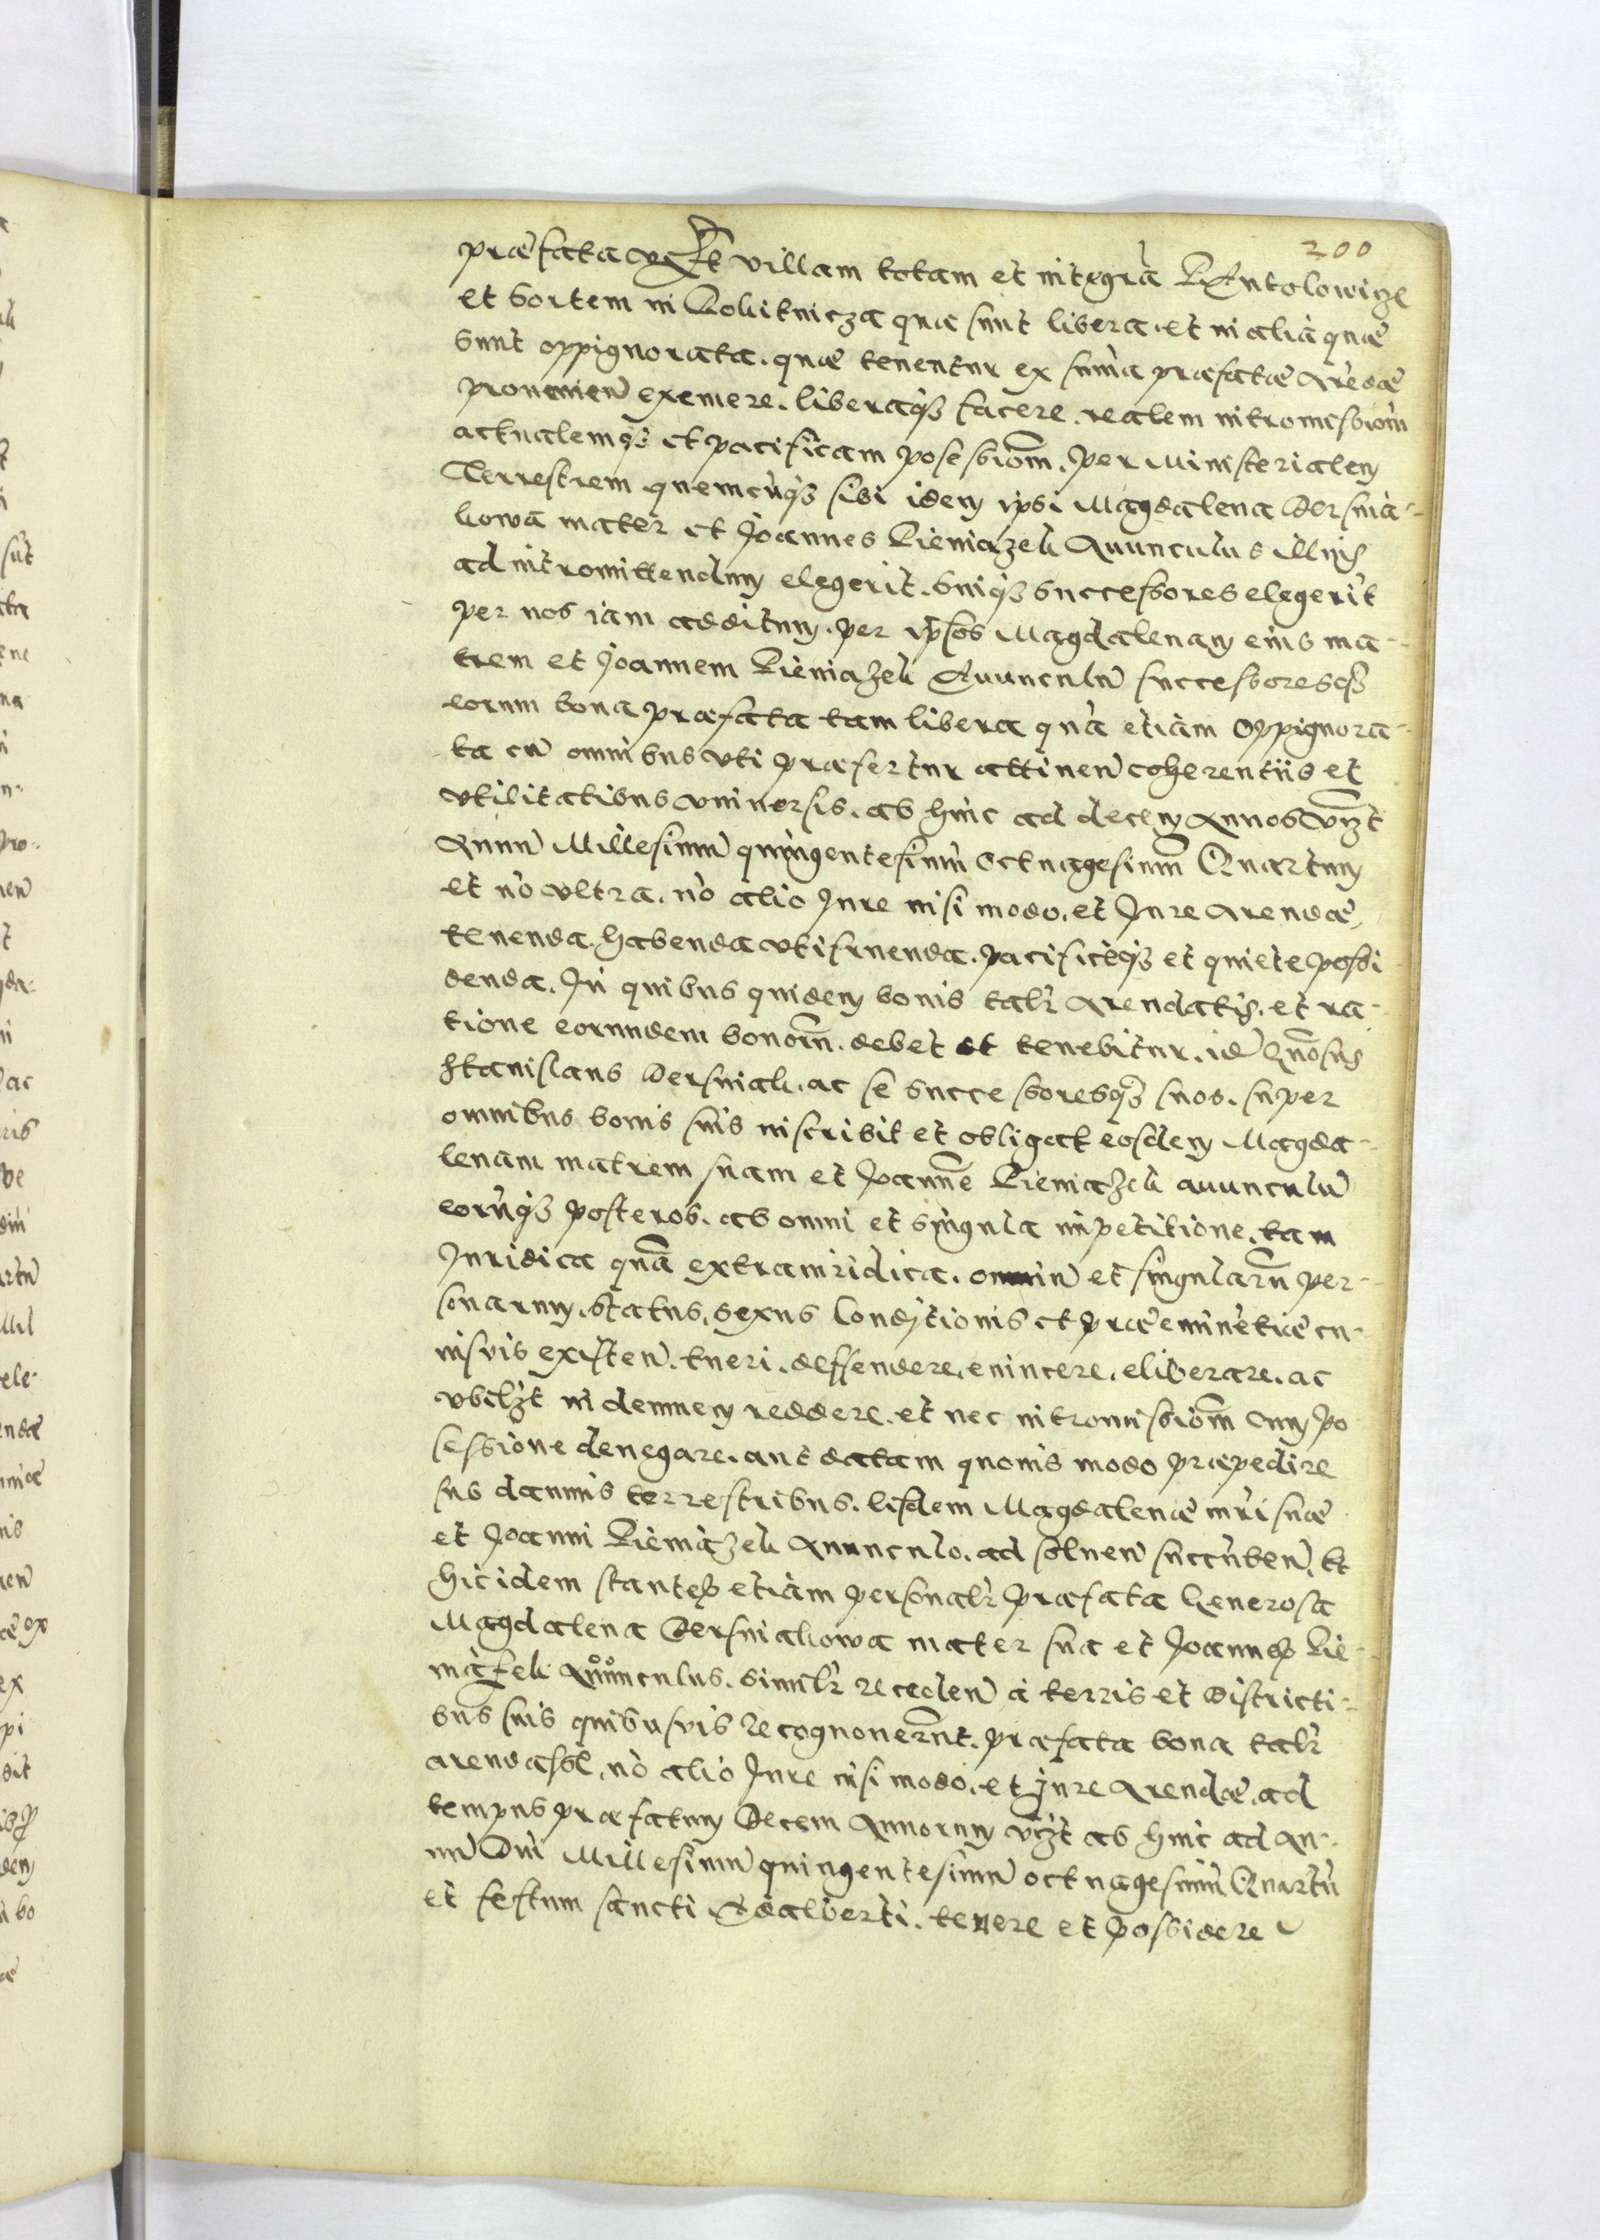 200
præfata vzt villam totam et integrā Antolowicze
et sortem in Bolitnicza quæ sunt libera, et in alia quæ
sunt oppignorata. quæ tenentur ex sum̄a præfatæ Arēdæ
prouenieñ exemere. liberaqʒ facere. realem intromissioñe
actualemqʒ et pacificam posessioñm, per Ministerialem
Terrestrem quemcūqʒ sibi idem ipsi Magdalena Dersnia-
kowa mater et Joannes Bieniaszek Auunculus illius
ad intromittendum elegerit. suiqʒ successores elegerīt
per nos iam additum. per ipsos Magdalenam eius ma-
trem et Joannem Bieniaszek Auunculū successoresqʒ
eorum bona præfata tam libera quā etiam oppignora-
ta cū omnibus vti præfertur attineñ coherentiis et
vtilitatibus vniuersis. ab hinc ad decem Annos vzt
Annū Millesimū quingentesimū octuagesimū Quartum
et nō vltra. nō alio Jure nisi modo. et Jure Arendæ,
tenenda. habenda vtifruenda. pacificeqʒ et quiete possi
denda. In quibus quidem bonis talr̄ Arendatis. et ra-
tione eorundem bonorū. debet et tenebitur. idē Gn̄osus
Stanislaus Dersniak. ac se successoresqʒ suos. super
omnibus bonis suis inscribit et obligat eosdem Magda-
lenam matrem suam et Joannē Bieniaszek auunculū
eorūqʒ posteros. ab omni et singula impetitione. tam
Juridica quā extraiuridica. omniū et singularū per-
sonarum, status, sexus Conditionis et præeminētiæ cu-
iusuis existeñ. tueri. deffendere, euincere. eliberare. ac
vbilzt indemnem reddere. et nec intromissioñm Cum po
sessione denegare. aut datam quouis modo præpedire
sub damnis terrestribus. Iisdem Magdalenæ mr̄i suæ
et Joanni Bieniaszek Auunculo. ad solueñ succūbeñ. Et
hic idem stantes etiam personalr̄ præfata Generosa
Magdalena Dersniakowa mater sua et Joannes Bie-
niaszek Auunculus. similr̄ recedeñ a terris et Districti-
bus suis quibusuis Recognouerūt. præfata bona talr̄
arendasse. nō alio Jure nisi modo. et Jure Arendæ. ad
tempus præfatum Decem Annorum vzt ab hinc ad An-
nū Dn̄i Millesimū quingentesimū octuagesimū Quartū
et festum sancti Adalberti. tenere et possidere